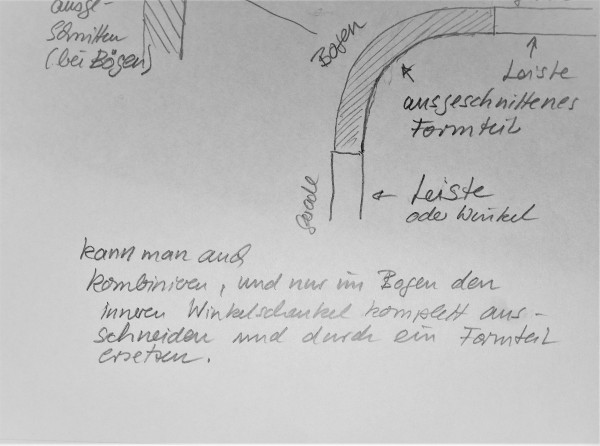 ausge-
schnitten
(bei Bögen)
Bogen
Leiste
ausgeschnittenes
Formteil
Gerade
Leiste
oder Winkel
kann man auch
kombinieren, und nur im Bogen den
inneren Winkelschenkel komplett aus-
schneiden und durch ein Formteil
ersetzen.